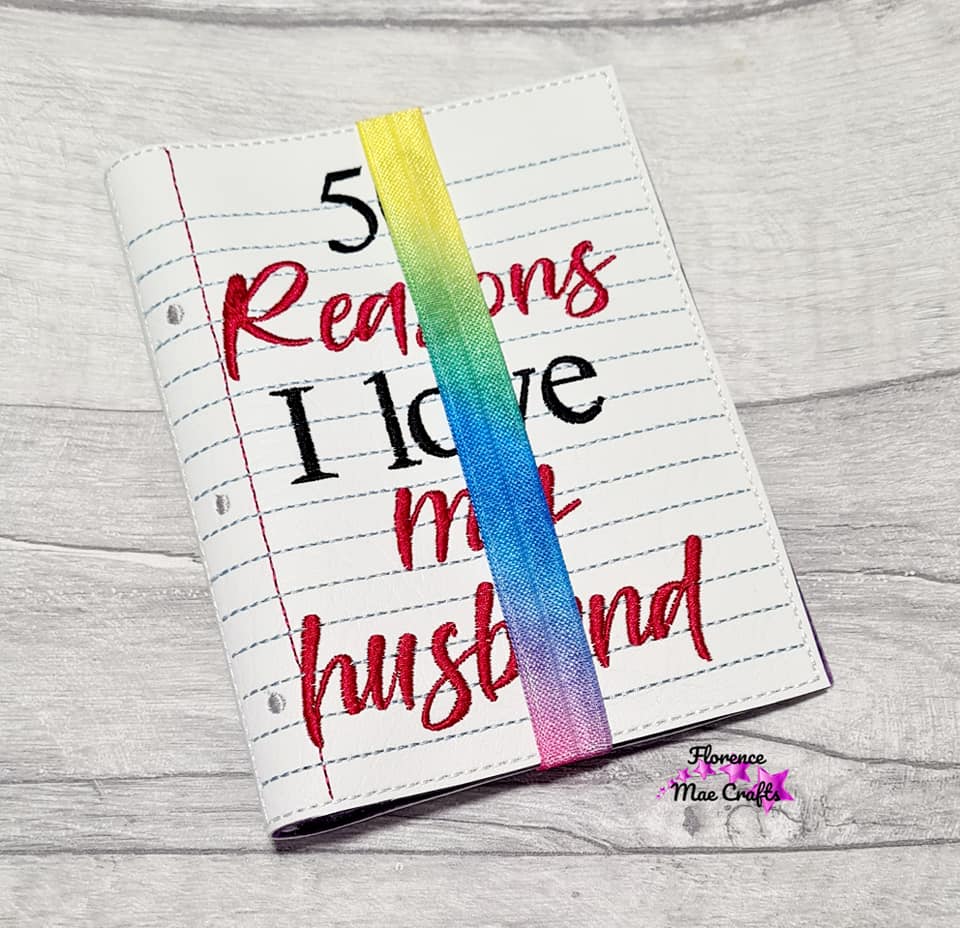 50
Reasons
I love
my
husband
Florence
Mae Crafts